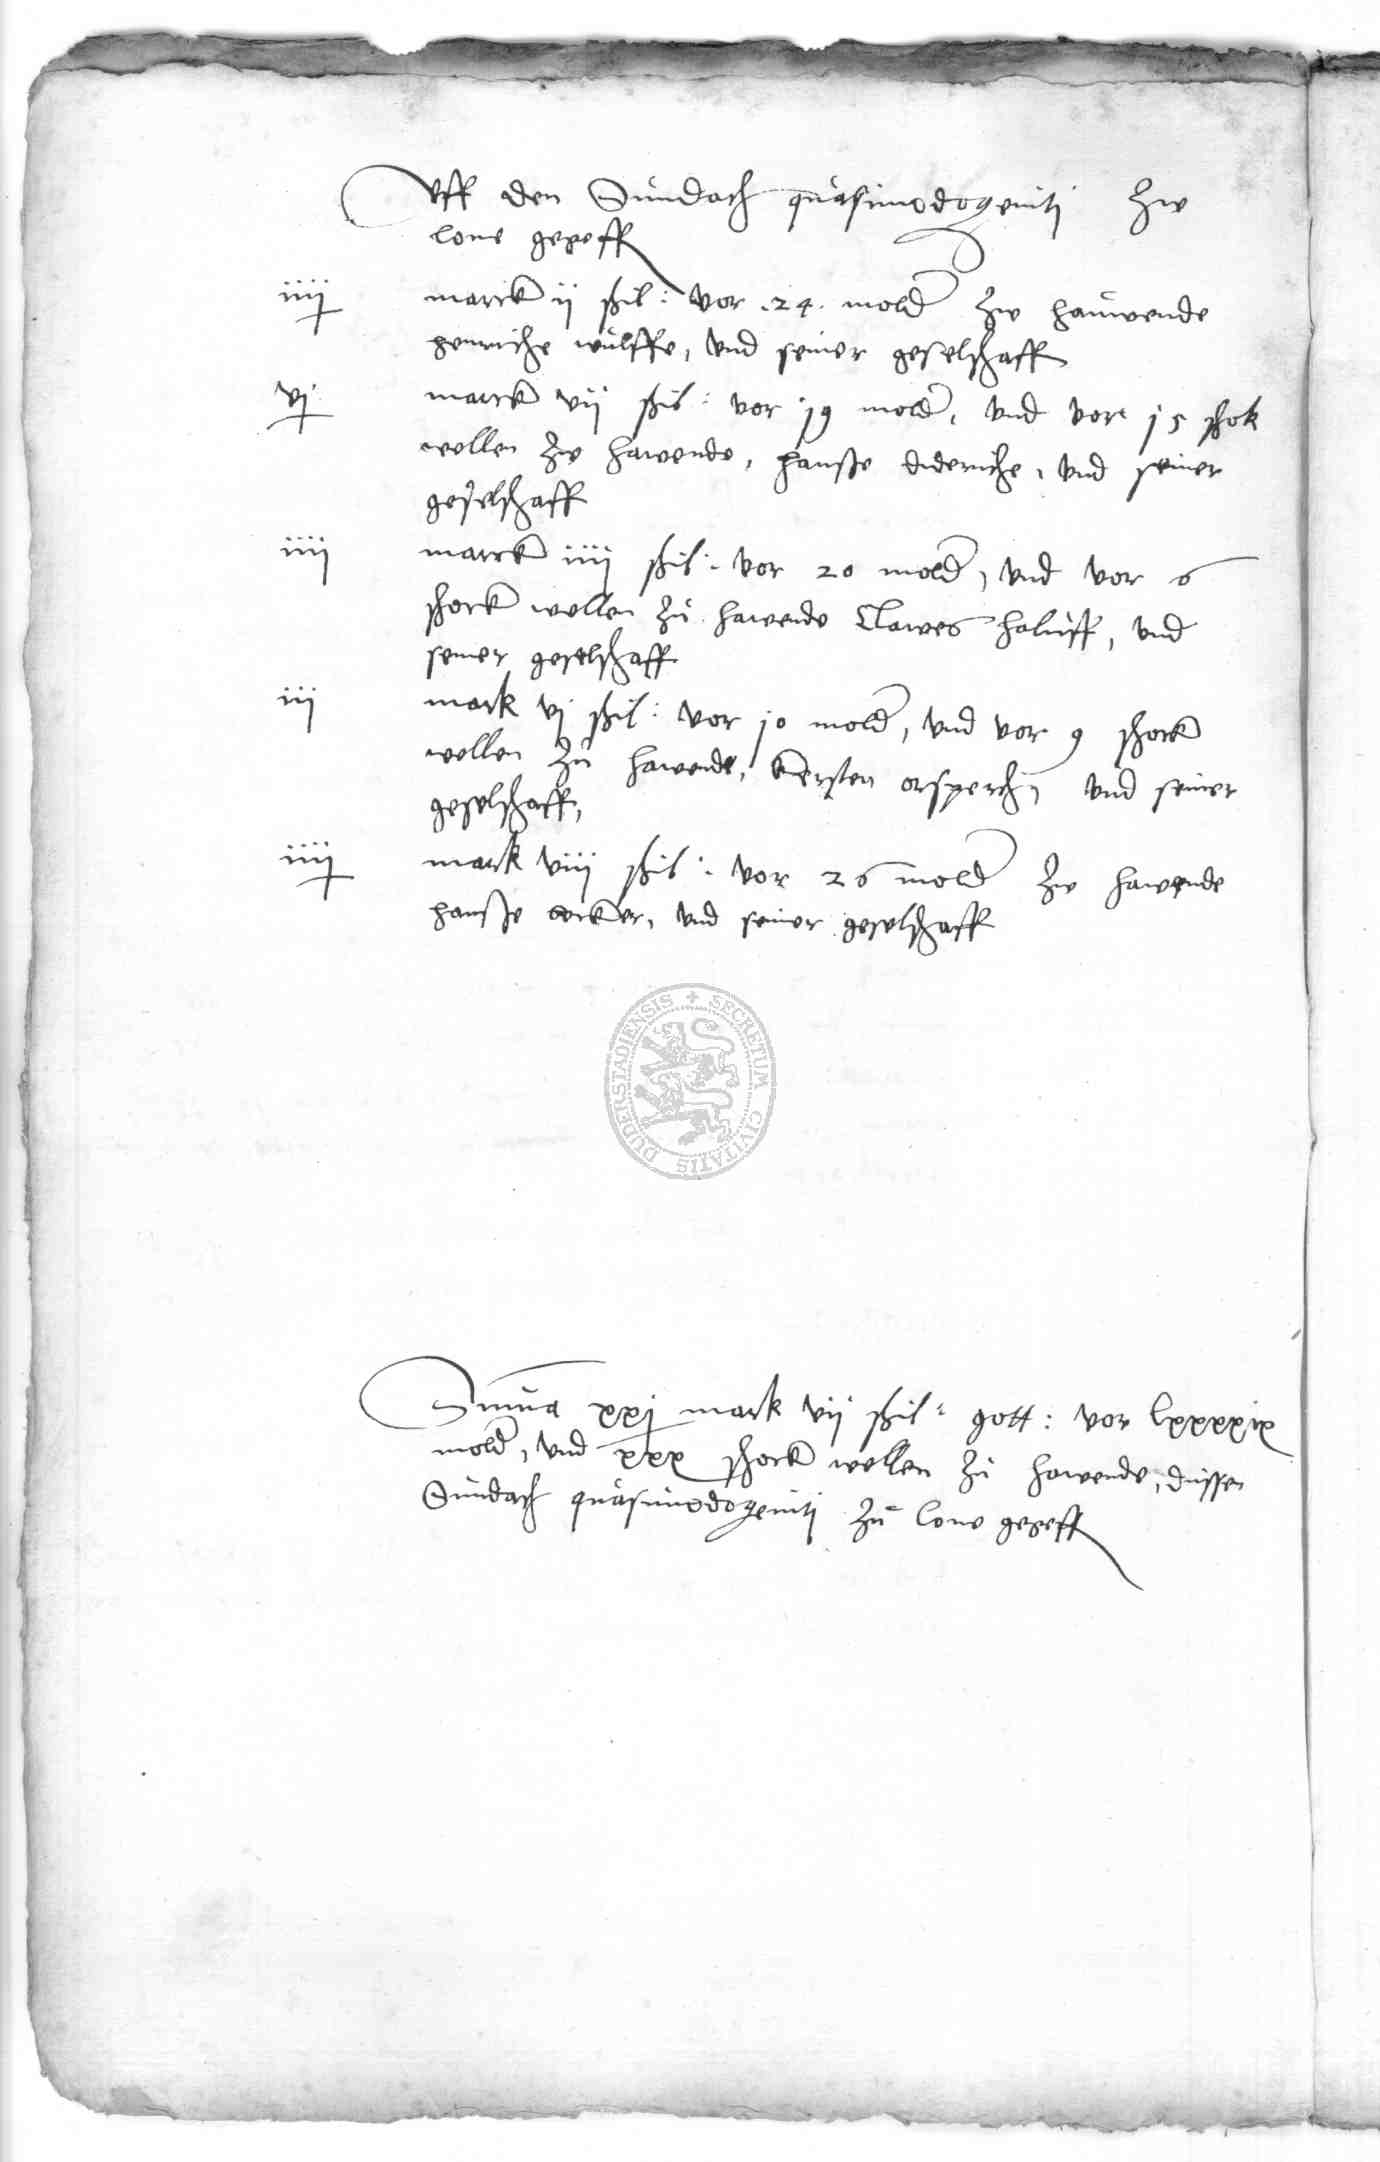 Uff den Sundach quasimodogeniti zw
lone gegeff
iiij marck ij schil: vor .24. mold zw hauwende
henriche wulffe, vnd seiner geselschaff
vj marck vij schil: vor 19 mold, vnd vor 15 schok
wellen zw hawende, hansse diderichse, vnd seiner
geselschaff
iiij marck iiij schil: vor 20 mold, vnd vor 6
schock wellen zu hawende Clawes haluff, vnd
seiner geselschaff
iij mark vj schil: vor 10 mold, vnd vor 9 schock
wellen zu hawende, kersten vnd seiner
geselschaff,
iiij mark viij schil: vor 26 mold zw hawende
hansse, vnd seiner geselschaff
DUDERSTADIENSIS + SECRETUM CIVITATIS
Suma xxj mark vij schil: gott: vor lxxxxix
mold, vnd xxx schock wellen zu hawende, dussen
Sundach quasimodogeniti zu lone gegeff